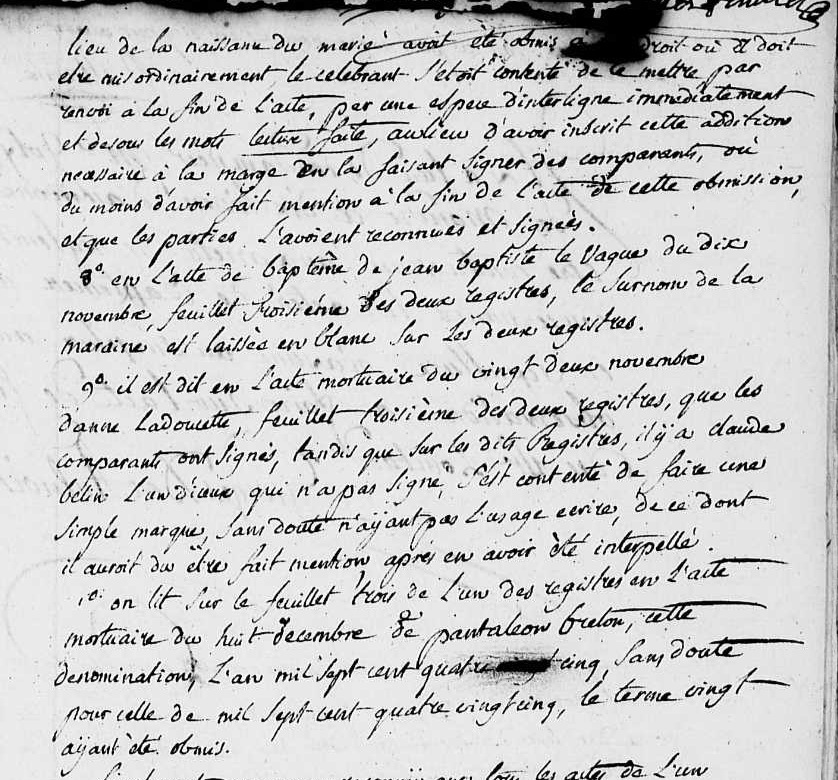 lieu de la naissance du marié avoit été obmis a droit où il doit
etre mis ordinairement le celebrant s'étoit contenté de le mettre par
renvoi à la fin de l'acte, par une espece d'interligne immédiatement
et desous les mots lecture faite, aulieu d'avoir inscrit cette addition
necessaire à la marge en la faisant signer des comparants, ou
du moins d'avoir fait mention à la fin de l'acte de cette obmission,
et que les parties l'avoient reconnuës et signeés.
8°. en l'acte de baptême de jean baptiste le Vague du dix
novembre, feuillet troisiéme des deux registres, le surnom de la
maraine est laissée en blanc sur les deux registres.
9°. il est dit en l'acte mortuaire du vingt deux novembre
d'anne Ladoucette, feuillet troisième des deux registres, que les
comparants ont signés, tandis que sur les dits Registres, il y a claude
belin l'un d'ieux qui n'a pas signé, s'est contenté de faire une
simple marque, sans doute n'ayant pas l'usage ecrire, de ce dont
il auroit du être fait mention apres en avoir été interpellé.
10. on lit sur le feuillet trois de l'un des registres en l'acte
mortuaire du huit decembre de pantaleon breton, cette
denomination, l'an mil sept cent quatre cinq, sans doute
pour celle de mil sept cent quatre vingt cinq, le terme vingt
ayant été obmis.
les actes de l'un